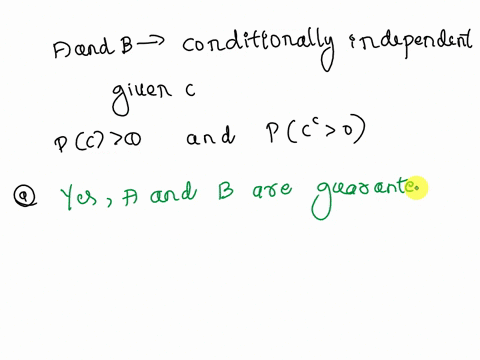 A and B → conditionally independent
given c
P(C) > 0 and P(Cᶜ > 0)
ⓐ Yes, A and B are guarante